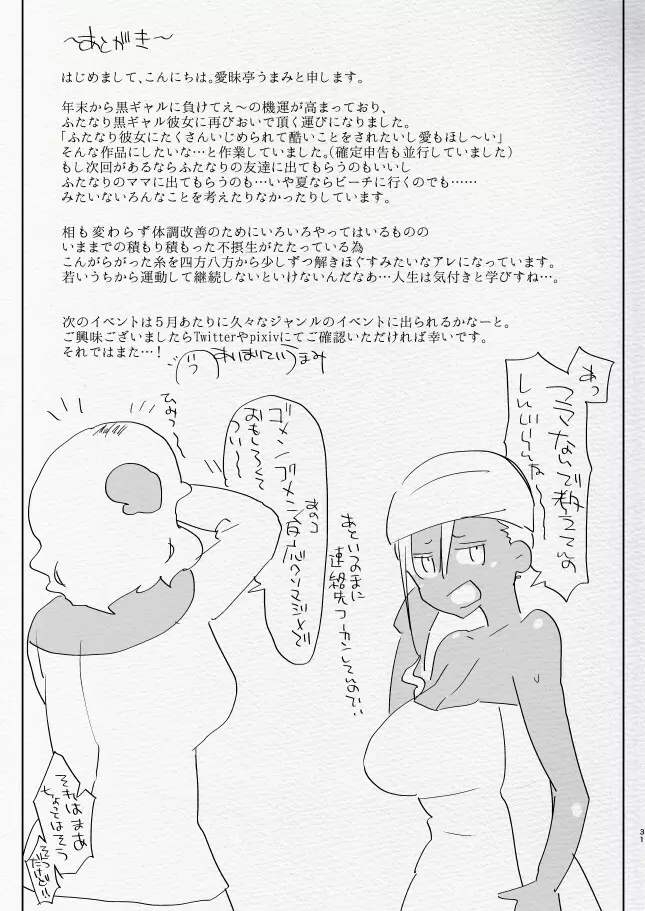 ～あとがき～
はじめまして、こんにちは。愛昧亭うまみと申します。
年末から黒ギャルに負けてえ～の機運が高まっており、
ふたなり黒ギャル彼女に再びおいで頂く運びになりました。
「ふたなり彼女にたくさんいじめられて酷いことをされたいし愛もほし～い」
そんな作品にしたいな…と作業していました。(確定申告も並行していました)
もし次回があるならふたなりの友達に出てもらうのもいいし
ふたなりのママに出てもらうのも…いや夏ならビーチに行くのでも……
みたいないろんなことを考えたりなかったりしています。
相も変わらず体調改善のためにいろいろやってはいるものの
いままでの積もり積もった不摂生がたたっている為
こんがらがった糸を四方八方から少しずつ解きほぐすみたいなアレになっています。
若いうちから運動して継続しないといけないんだなあ…人生は気付きと学びすね…。
次のイベントは５月あたりに久々なジャンルのイベントに出られるかなーと。
ご興味ございましたらTwitterやpixivにてご確認いただければ幸いです。
それではまた…！
あいまいていうまみ
あっ
フツマないで教えてんの
ゴメンゴメン
おもしろくて
つい～
あとといつのまに
連絡先コーカンしてんので!!
それはまあ
ちょっとはそう
31